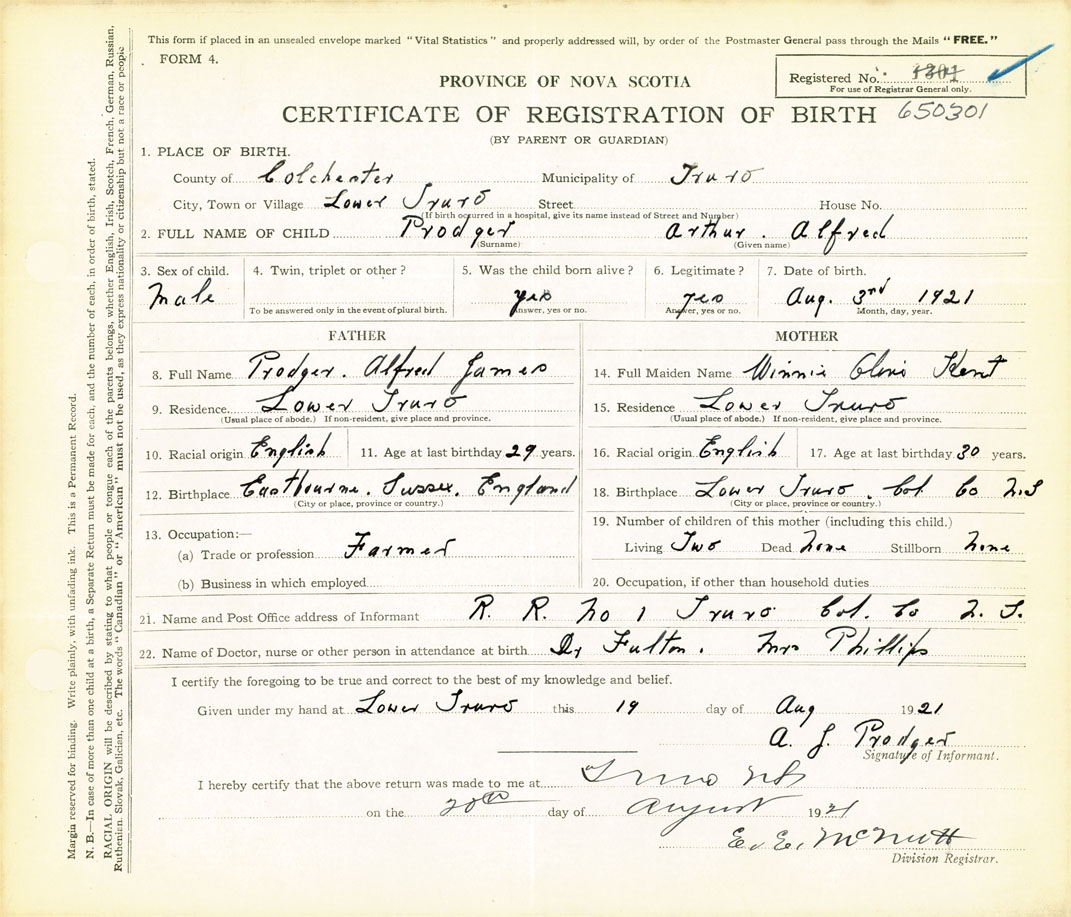 This form if placed in an unsealed envelope marked "Vital Statistics" and properly addressed will, by order of the Postmaster General pass through the Mails "FREE."
FORM 4.
Registered No. 1301
For use of Registrar General only.
PROVINCE OF NOVA SCOTIA
CERTIFICATE OF REGISTRATION OF BIRTH 650301
(BY PARENT OR GUARDIAN)
1. PLACE OF BIRTH.
County of Colchester Municipality of Truro
City, Town or Village Lower Truro Street House No.
(If birth occurred in a hospital, give its name instead of Street and Number)
2. FULL NAME OF CHILD Prodger Arthur. Alfred
(Surname) (Given name)
3. Sex of child. 4. Twin, triplet or other? 5. Was the child born alive? 6. Legitimate? 7. Date of birth.
Male yes yes Aug. 3rd 1921
To be answered only in the event of plural birth. Answer, yes or no. Answer, yes or no. Month, day, year.
FATHER MOTHER
8. Full Name Prodger. Alfred James 14. Full Maiden Name Winnie Kent
9. Residence Lower Truro 15. Residence Lower Truro
(Usual place of abode.) If non-resident, give place and province. (Usual place of abode.) If non-resident, give place and province.
10. Racial origin English 11. Age at last birthday 29 years. 16. Racial origin English 17. Age at last birthday 30 years.
12. Birthplace Eastbourne. Sussex. England 18. Birthplace Lower Truro. Col Co N.S
(City or place, province or country.) (City or place, province or country.)
13. Occupation:— 19. Number of children of this mother (including this child.)
(a) Trade or profession Farmer Living Two Dead None Stillborn None
(b) Business in which employed 20. Occupation, if other than household duties
21. Name and Post Office address of Informant R. R. No 1 Truro Col. Co N. S.
22. Name of Doctor, nurse or other person in attendance at birth Dr Fulton. Mrs Phillips
I certify the foregoing to be true and correct to the best of my knowledge and belief.
Given under my hand at Lower Truro this 19 day of Aug 1921
A. J. Prodger
Signature of Informant.
I hereby certify that the above return was made to me at Truro NS
on the 20th day of August 1921
E. E. McNutt
Division Registrar.
Margin reserved for binding. Write plainly, with unfading ink. This is a Permanent Record.
N. B.—In case of more than one child at a birth, a Separate Return must be made for each, and the number of each, in order of birth, stated.
RACIAL ORIGIN will be described by stating to what people or tongue each of the parents belongs, whether English, Irish, Scotch, French, German, Russian,
Ruthenian, Slovak, Galician, etc. The words "Canadian" or "American" must not be used, as they express nationality or citizenship but not a race or people